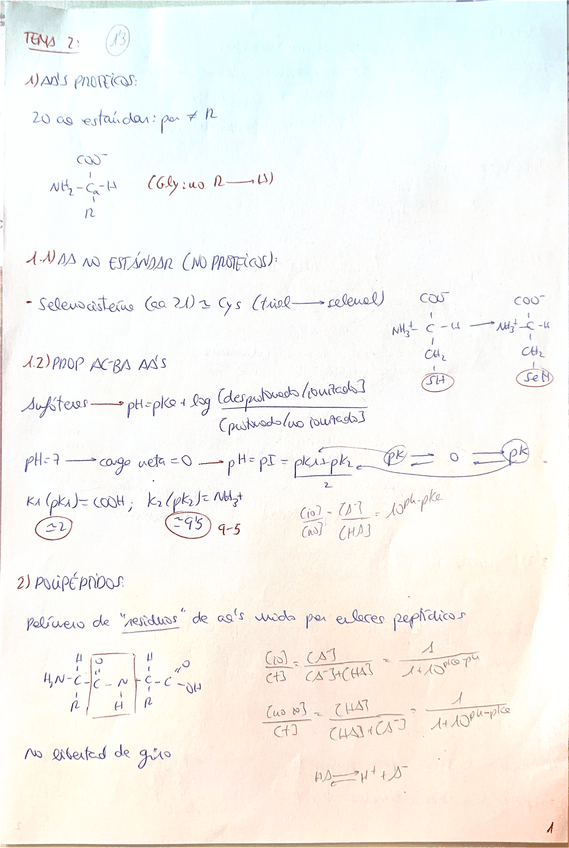 TEMA 2: 13
1) AA'S PROTEICOS:
20 aa estándar: por ≠ R
COO⁻
NH₂ - Cα - H (Gly: no R → H)
R
1.1) AA NO ESTÁNDAR (NO PROTEICOS):
- Selenocisteína (aa 21) ≃ Cys (tiol → selenol)
COO⁻ COO⁻
NH₃⁺ - C - H → NH₃⁺ - C - H
CH₂ CH₂
SH SeH
1.2) PROP AC-BA AA'S
Anfóteros → pH = pKa + log [desprotonado/ionizado]
[protonado/no ionizado]
pH = 7 → carga neta = 0 → pH = pI = pK₁ + pK₂ pK ⇌ 0 ⇌ pK
2
K₁ (pK₁) = COOH; K₂ (pK₂) = NH₃⁺
≃2 ≃9'5 9-5
[io] = [A⁻] = 10^pH-pKa
[no] [HA]
2) POLIPÉPTIDOS:
Polímero de "residuos" de aa's unido por enlaces peptídicos
H O H O
H₂N - C - C - N - C - C - OH
R H R
[io] = [A⁻] = 1
[t] [A⁻]+[HA] 1+10^pKa-pH
[no io] = [HA] = 1
[t] [HA]+[A⁻] 1+10^pH-pKa
No libertad de giro
HA ⇌ H⁺ + A⁻
1